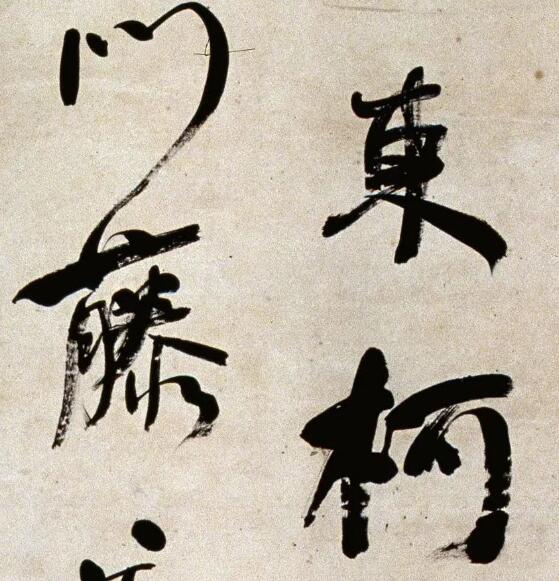 東柯
門藤